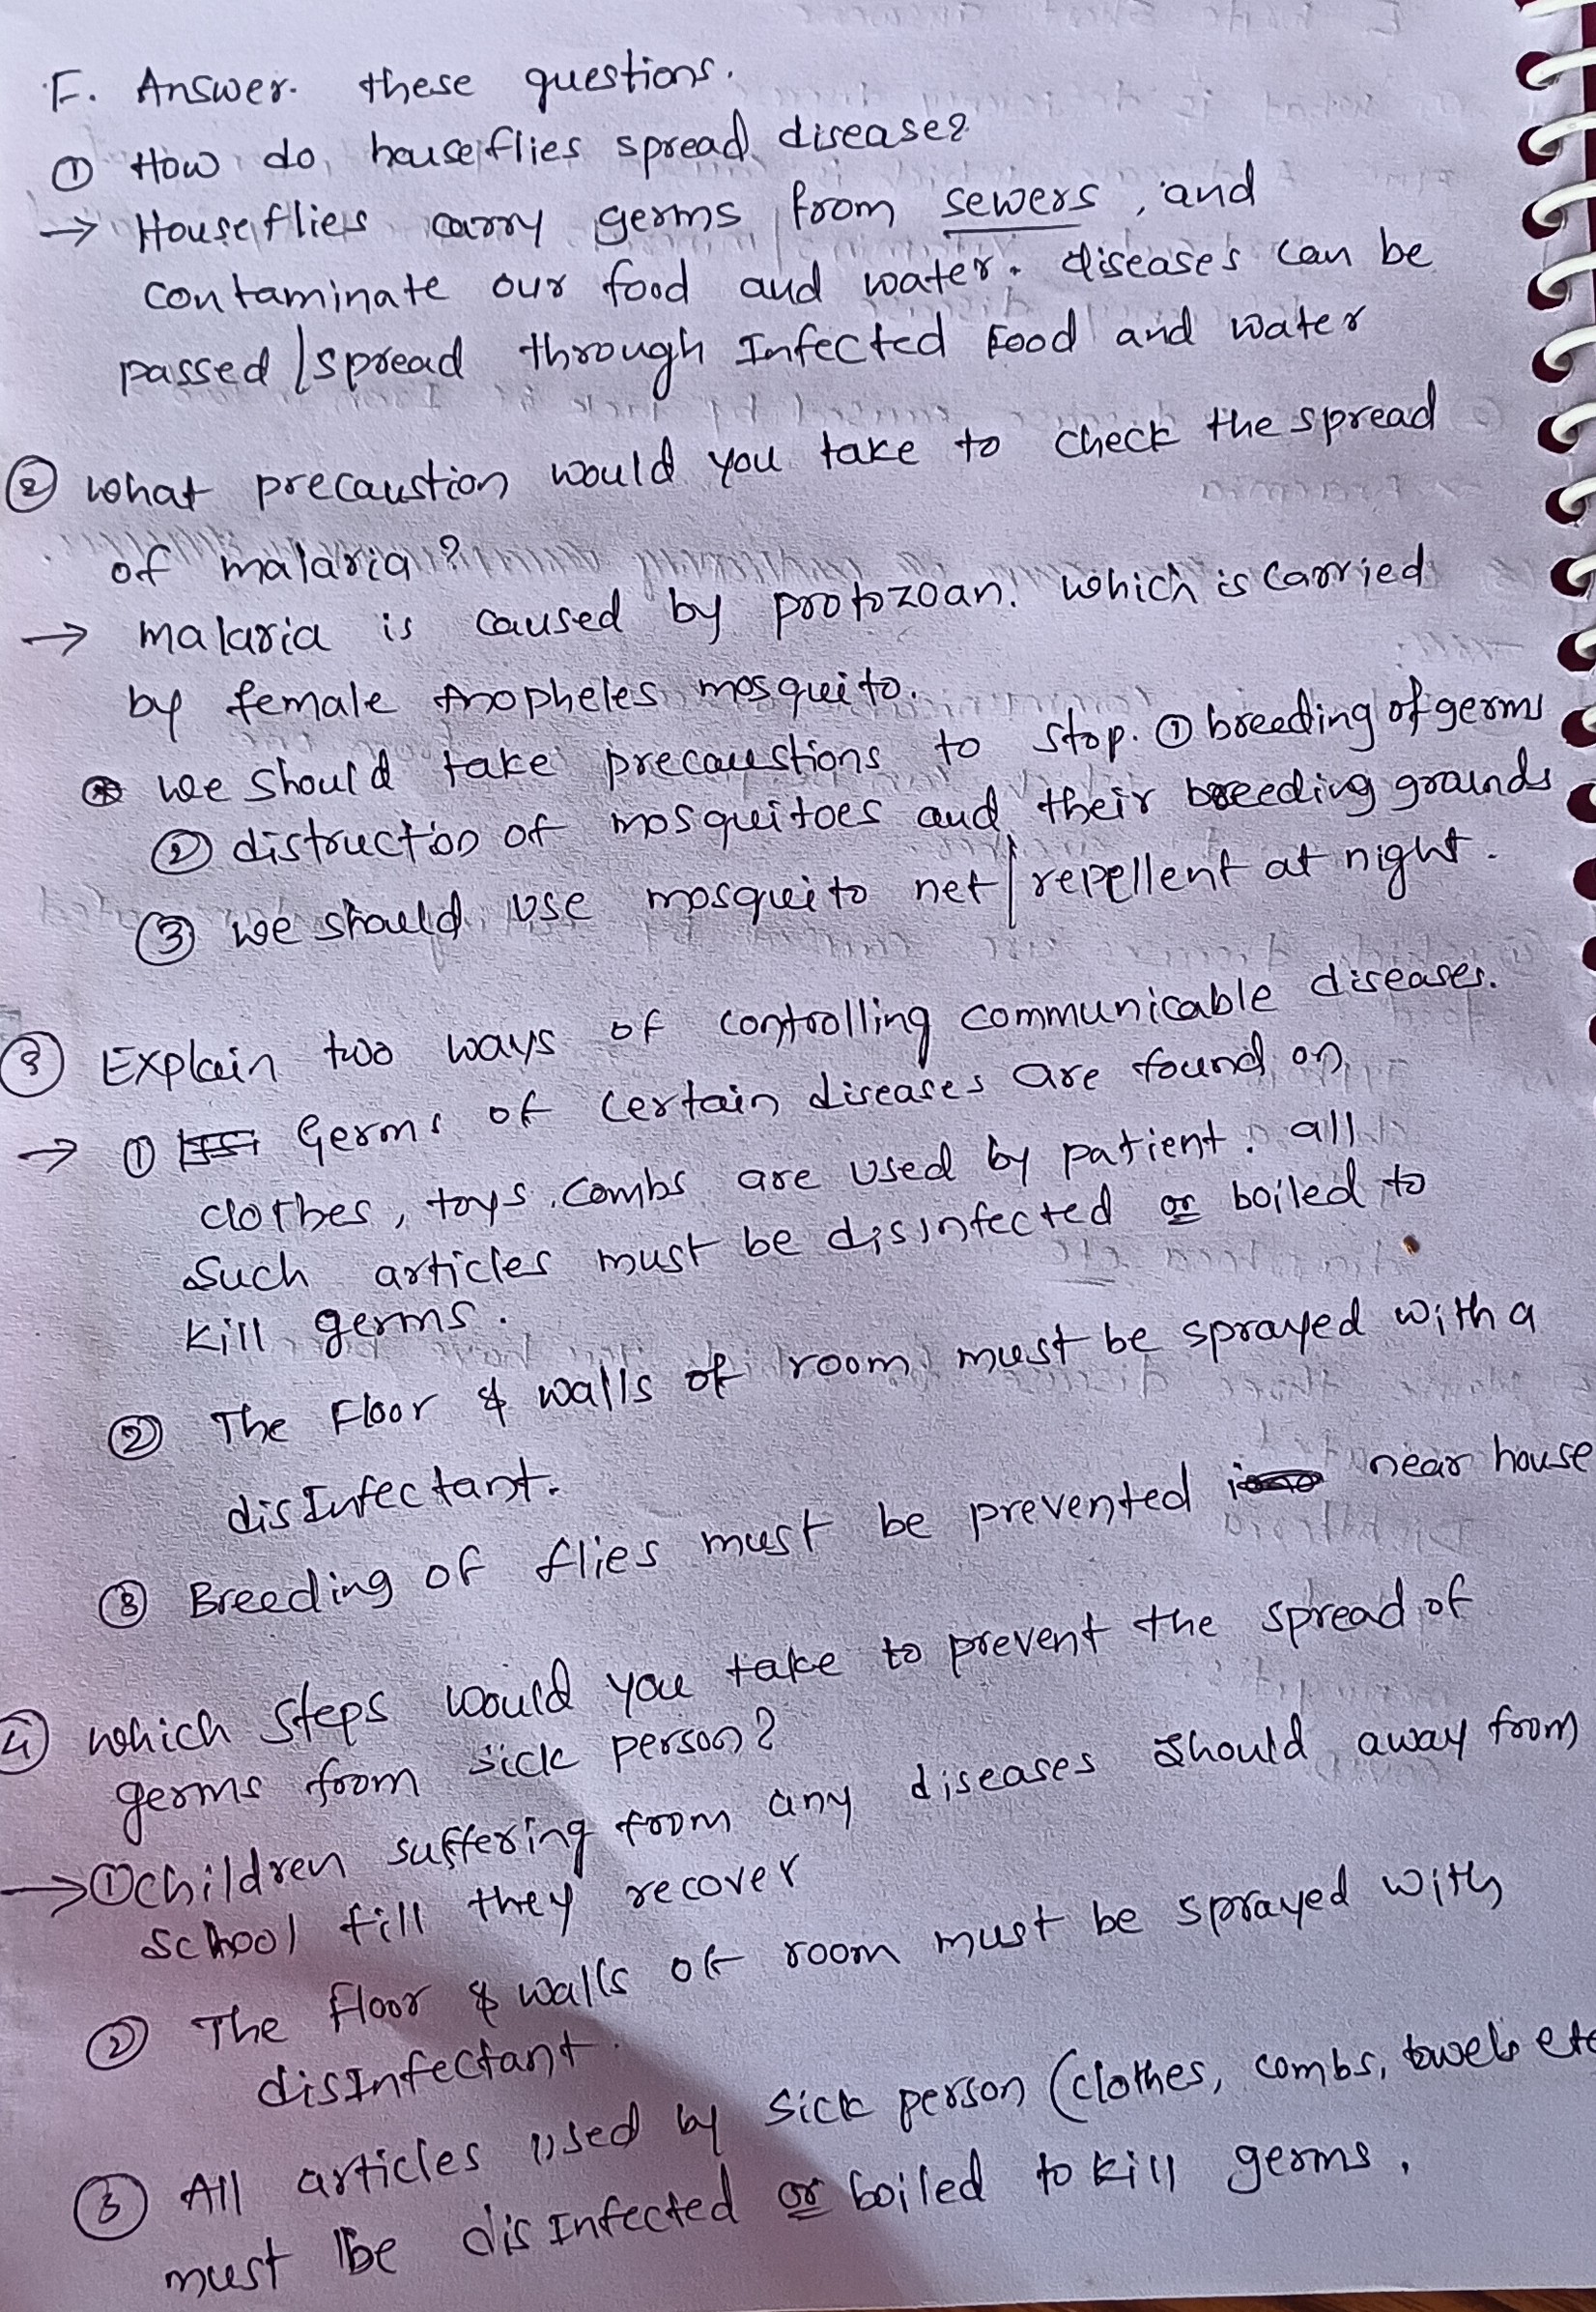 F. Answer these questions.
① How do houseflies spread disease?
→ Houseflies carry germs from sewers, and
contaminate our food and water. diseases can be
passed / spread through Infected Food and water
② what precaustion would you take to check the spread
of malaria?
→ malaria is caused by protozoan. which is carried
by female Anopheles mosquito.
we should take precaustions to stop. ① breeding of germs
② distruction of mosquitoes and their breeding grounds
③ we should use mosquito net / repellent at night.
③ Explain two ways of controlling communicable diseases.
→ ① Germs of certain diseases are found on
clothes, toys, combs are used by patient. all
such articles must be disinfected or boiled to
kill germs.
② The Floor & walls of room must be sprayed with a
disInfectant.
③ Breeding of flies must be prevented near house
④ which steps would you take to prevent the spread of
germs from sick person?
→ ① children suffering from any diseases should away from
school till they recover
② The floor & walls of room must be sprayed with
disInfectant.
③ All articles used by sick person (clothes, combs, towels etc
must be disInfected or boiled to kill germs.